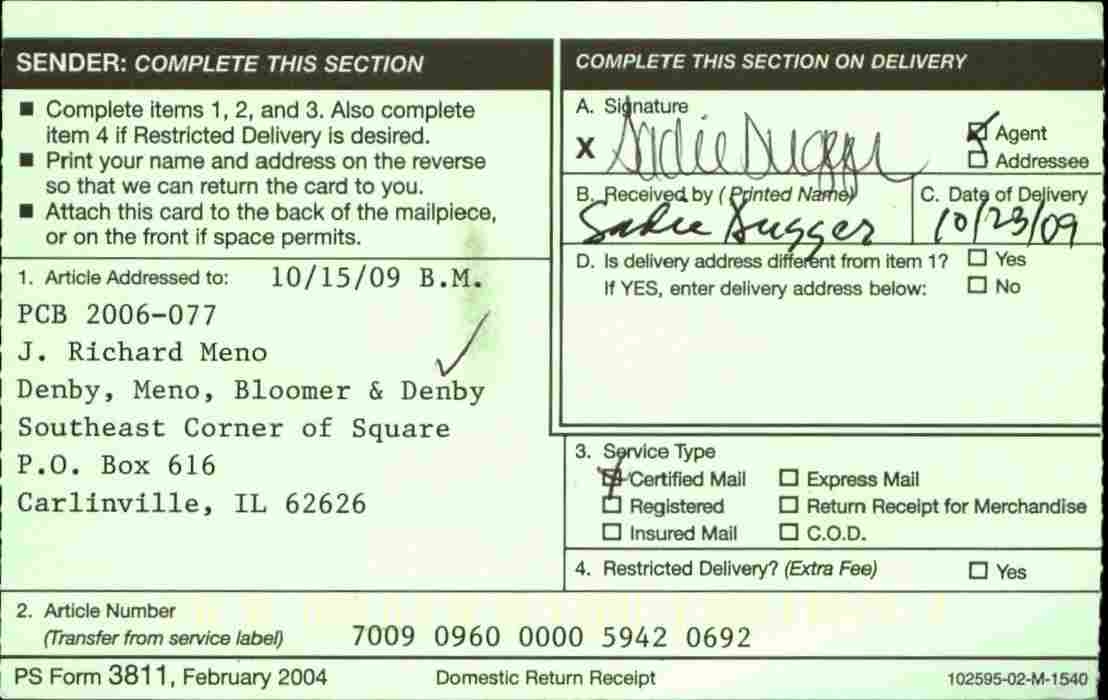 SENDER: COMPLETE THIS SECTION
■ Complete items 1, 2, and 3. Also complete
item 4 if Restricted Delivery is desired.
■ Print your name and address on the reverse
so that we can return the card to you.
■ Attach this card to the back of the mailpiece,
or on the front if space permits.
1. Article Addressed to: 10/15/09 B.M.
PCB 2006-077
J. Richard Meno
Denby, Meno, Bloomer & Denby
Southeast Corner of Square
P.O. Box 616
Carlinville, IL 62626
COMPLETE THIS SECTION ON DELIVERY
A. Signature
X Sadie Dugger
Agent
Addressee
B. Received by (Printed Name) C. Date of Delivery
Sadie Dugger 10/23/09
D. Is delivery address different from item 1? Yes
If YES, enter delivery address below: No
3. Service Type
Certified Mail Express Mail
Registered Return Receipt for Merchandise
Insured Mail C.O.D.
4. Restricted Delivery? (Extra Fee) Yes
2. Article Number
(Transfer from service label) 7009 0960 0000 5942 0692
PS Form 3811, February 2004 Domestic Return Receipt 102595-02-M-1540